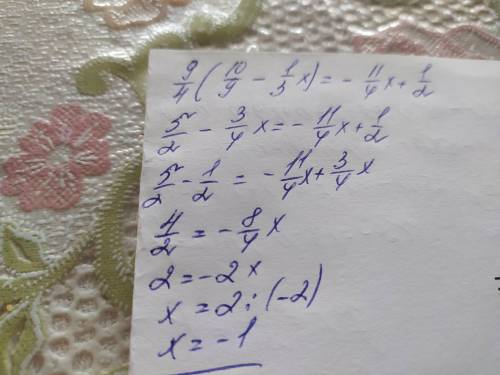 9/4 (10/9 - 1/3 x) = - 11/4 x + 1/2
5/2 - 3/4 x = - 11/4 x + 1/2
5/2 - 1/2 = - 11/4 x + 3/4 x
4/2 = - 8/4 x
2 = -2x
x = 2 : (-2)
x = -1